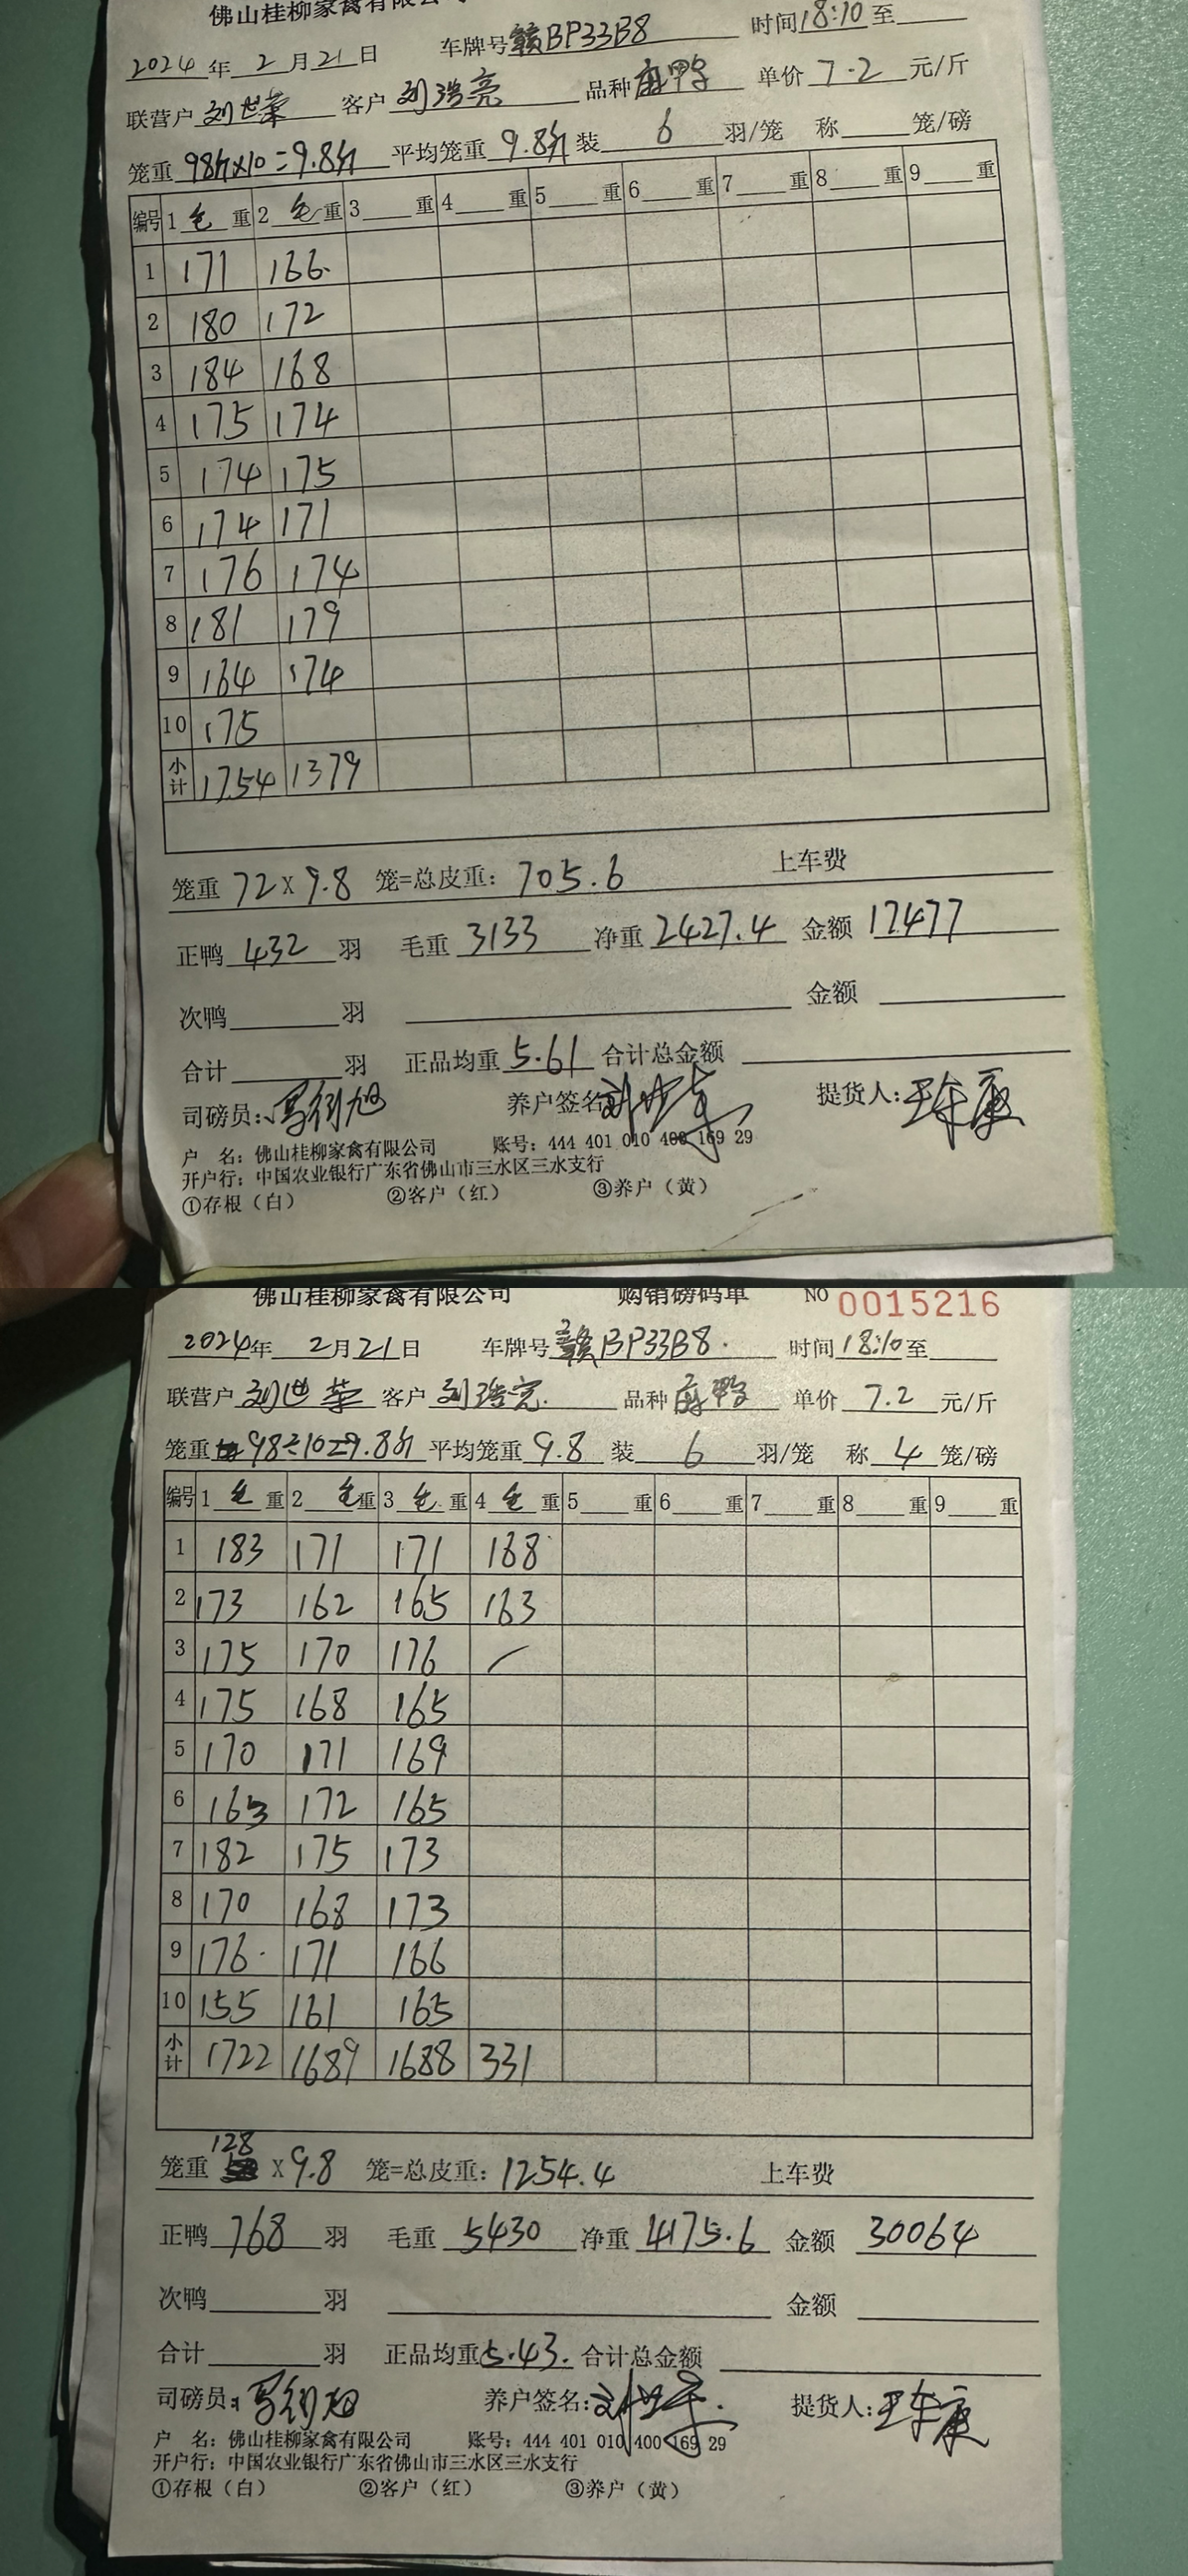 佛山桂柳家禽有限公司
2024年 2月21日 车牌号 赣BP33B8 时间18:10至
联营户 刘世荣 客户 刘浩亮 品种 麻鸭 单价 7.2 元/斤
笼重 98斤×10=9.8斤 平均笼重 9.8斤 装 6 羽/笼 称 笼/磅
编号 1 毛 重 2 毛 重 3 重 4 重 5 重 6 重 7 重 8 重 9 重
1 171 166
2 180 172
3 184 168
4 175 174
5 174 175
6 174 171
7 176 174
8 181 179
9 164 174
10 175
小计 1754 1379
笼重 72 X 9.8 笼=总皮重: 705.6 上车费
正鸭 432 羽 毛重 3133 净重 2427.4 金额 17477
次鸭 羽 金额
合计 羽 正品均重 5.61 合计总金额
司磅员: 养户签名 提货人:
户 名: 佛山桂柳家禽有限公司 账号: 444 401 010 400 169 29
开户行: 中国农业银行广东省佛山市三水区三水支行
①存根(白) ②客户(红) ③养户(黄)
佛山桂柳家禽有限公司 购销磅码单 NO 0015216
2024年 2月21日 车牌号 赣BP33B8 时间 18:10至
联营户 刘世荣 客户 刘浩亮 品种 麻鸭 单价 7.2 元/斤
笼重 98÷10=9.8斤 平均笼重 9.8 装 6 羽/笼 称 4 笼/磅
编号 1 毛 重 2 毛 重 3 毛 重 4 毛 重 5 重 6 重 7 重 8 重 9 重
1 183 171 171 168
2 173 162 165 163
3 175 170 176
4 175 168 165
5 170 171 169
6 163 172 165
7 182 175 173
8 170 168 173
9 176 171 166
10 155 161 165
小计 1722 1689 1688 331
笼重 128 X 9.8 笼=总皮重: 1254.4 上车费
正鸭 768 羽 毛重 5430 净重 4175.6 金额 30064
次鸭 羽 金额
合计 羽 正品均重 5.43. 合计总金额
司磅员: 养户签名: 提货人:
户 名: 佛山桂柳家禽有限公司 账号: 444 401 010 400 169 29
开户行: 中国农业银行广东省佛山市三水区三水支行
①存根(白) ②客户(红) ③养户(黄)